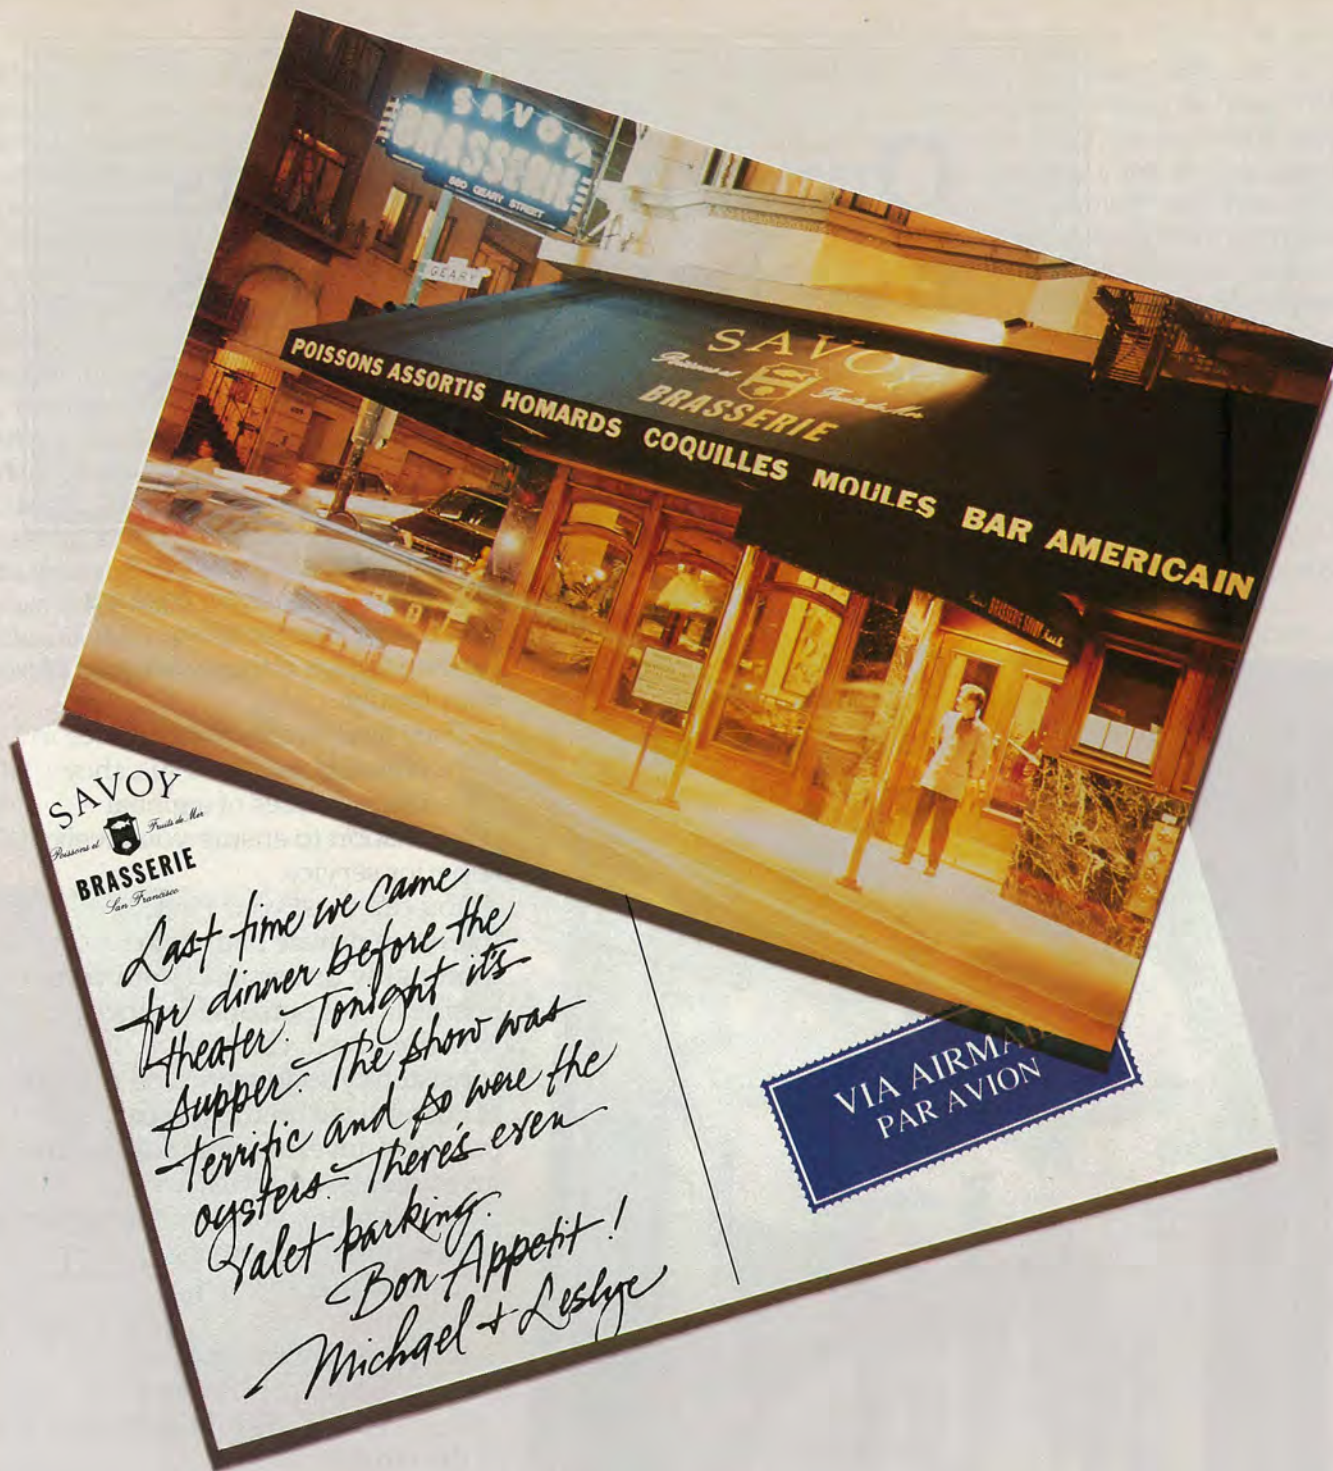 SAVOY
BRASSERIE
580 GEARY STREET
GEARY
SAVOY
Poissons et Fruits de Mer
BRASSERIE
POISSONS ASSORTIS HOMARDS COQUILLES MOULES BAR AMERICAIN
BRASSERIE SAVOY
SAVOY
Poissons et Fruits de Mer
BRASSERIE
San Francisco
Last time we came
for dinner before the
theater. Tonight it's
supper. The show was
terrific and so were the
oysters. There's even
valet parking.
Bon Appetit!
Michael + Leslye
VIA AIRMA
PAR AVION